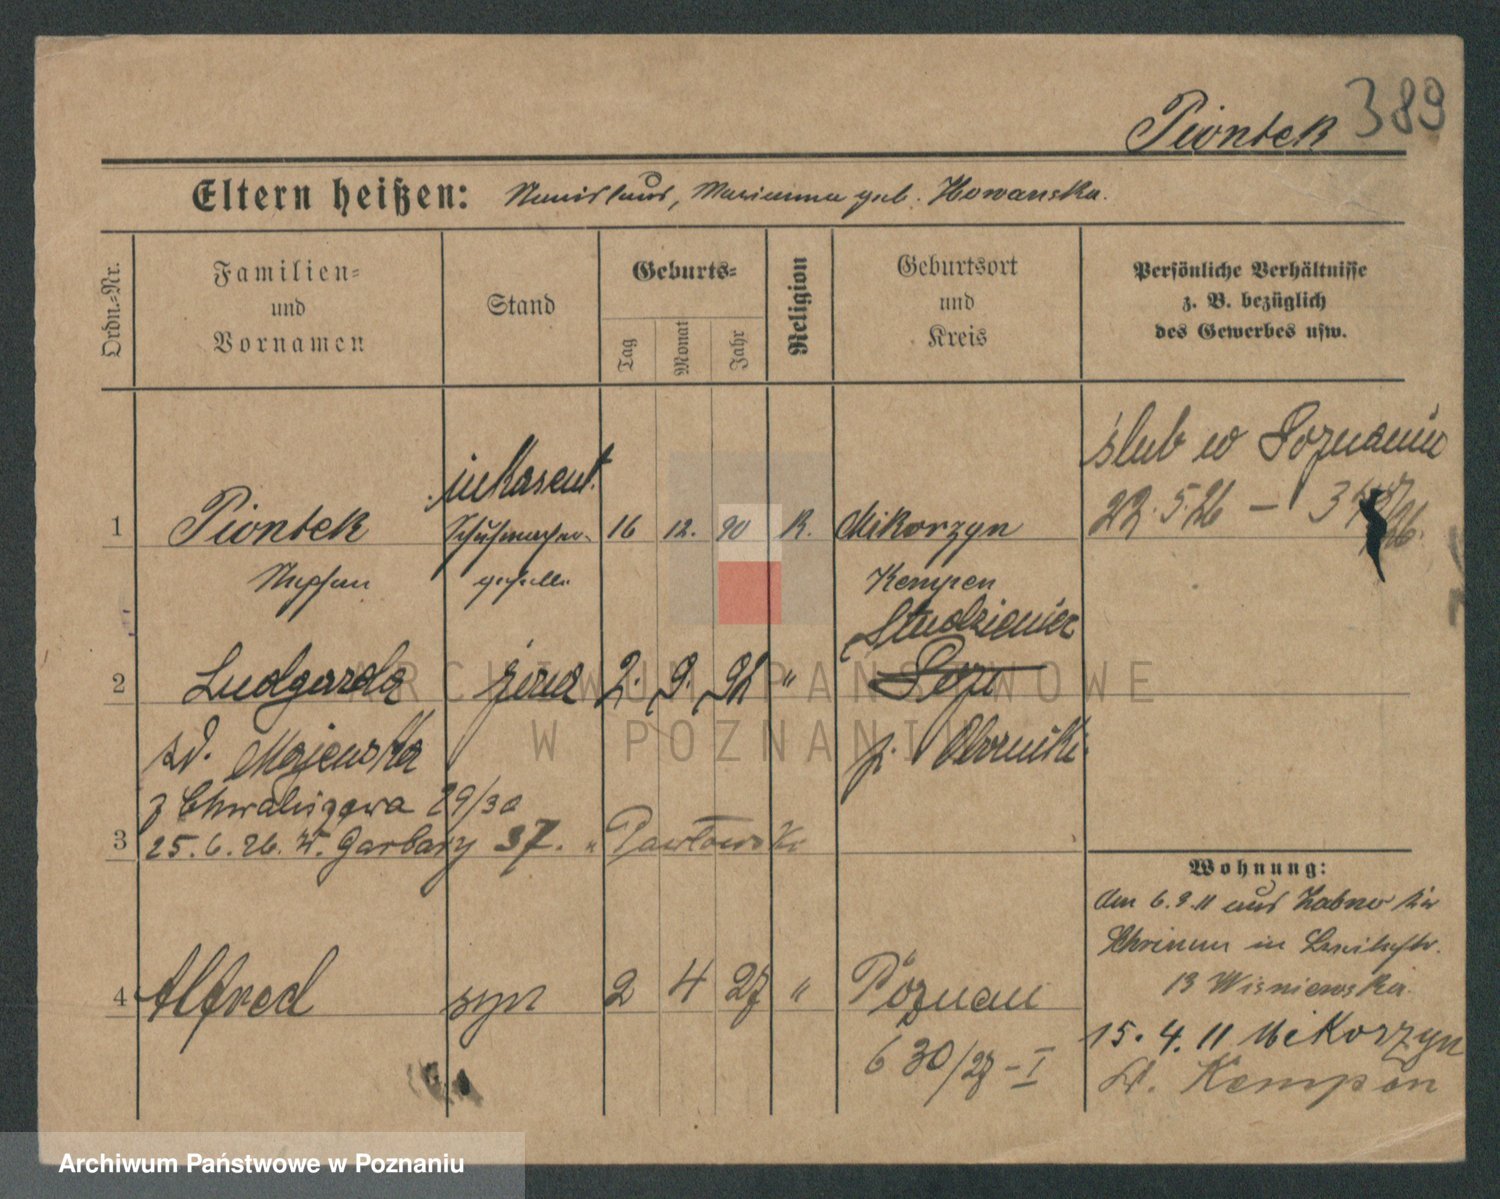 389
Piontek
Eltern heißen: Stanislaus, Marianna geb. Howanska.
Ordn.=Nr.
Familien=
und
Vornamen
Stand
Geburts=
Tag
Monat
Jahr
Religion
Geburtsort
und
Kreis
Persönliche Verhältnisse
z. B. bezüglich
des Gewerbes usw.
ślub w Poznaniu
22.5.26 –
inkasent.
1 Piontek Schuhmacher- 16 12. 90 K. Mikorzyn
Stephan geselle Kempen
Studzieniec
2 Ludgarda żona 2. 9. 92 "
z d. Majewska p. Oborniki
z Chwaliszewa 29/30
3 25.6.26. W. Garbary 37. " Pawłowski
Wohnung:
den 6.9.11 aus Zabno Kr
Schrimm in
13 Wisniewska.
4 Alfred syn 2 4 27 " Poznań
630/27 – I
15.4.11 Mikorzyn
Kr. Kempen
ARCHIWUM PAŃSTWOWE
W POZNANIU
Archiwum Państwowe w Poznaniu